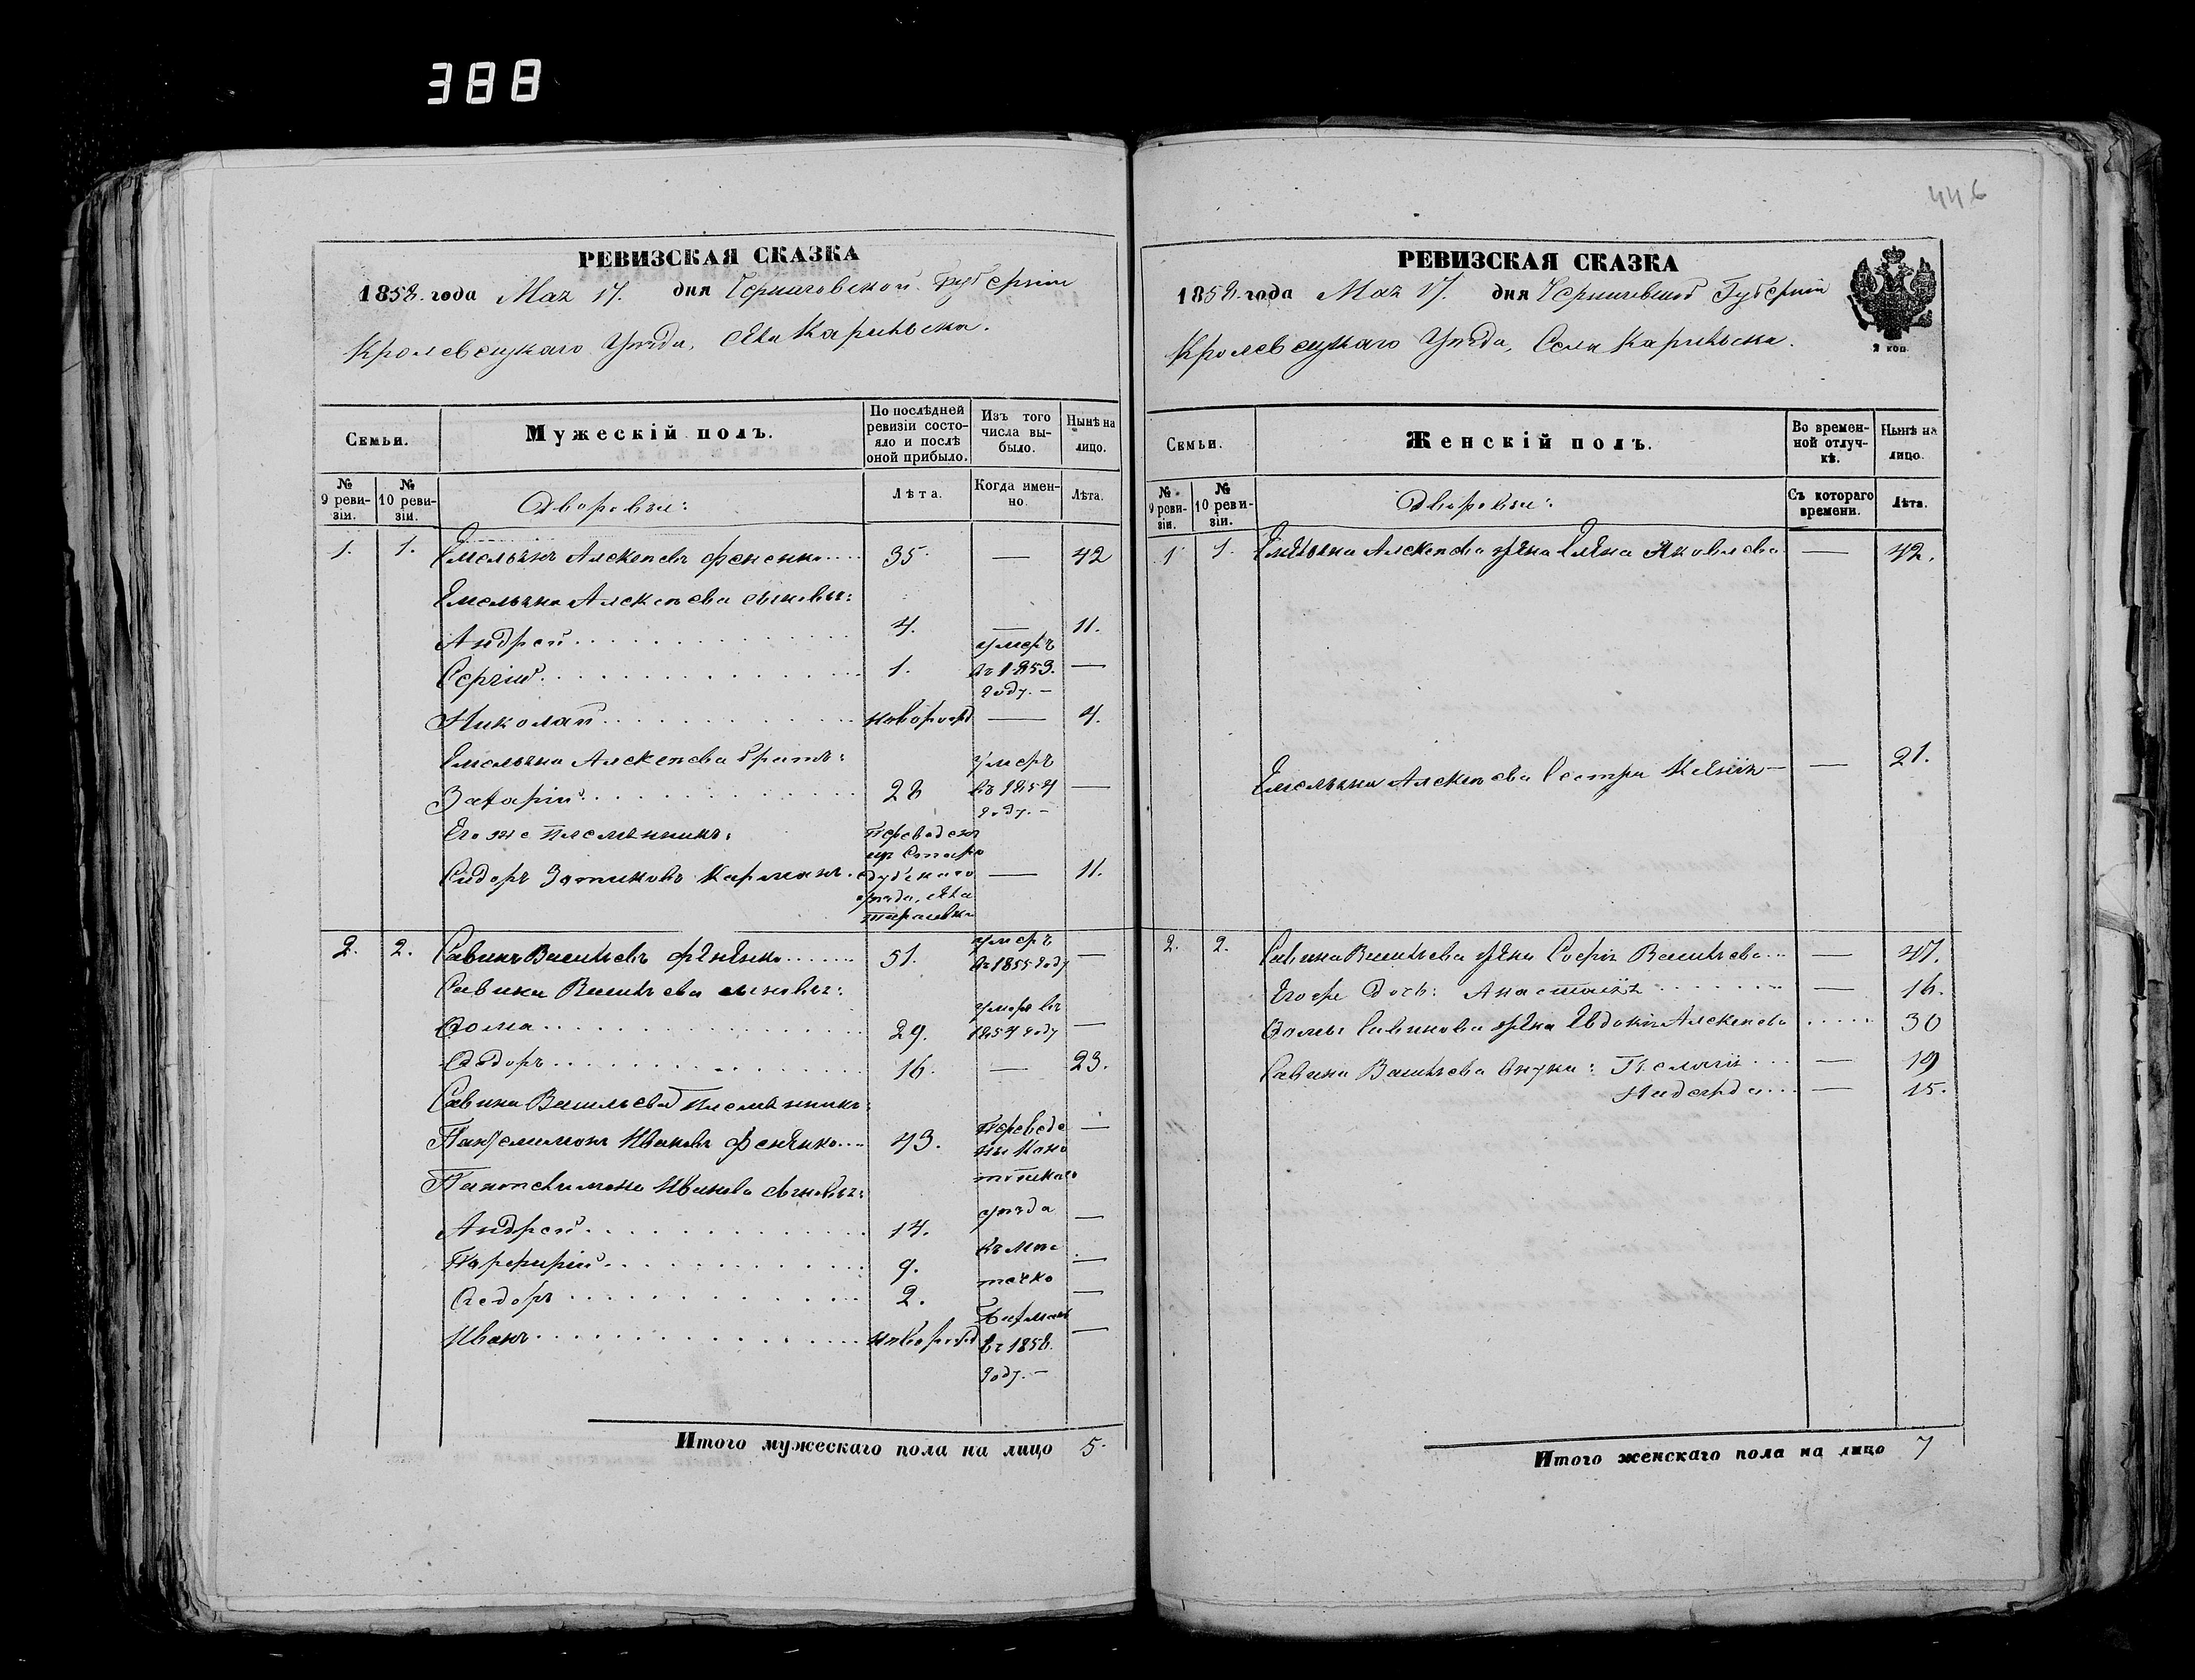 388
446
РЕВИЗСКАЯ СКАЗКА
1858 года Мая 17. дня Черниговской Губерніи
Кролевецкаго Уѣзда, села Карильска.
Семьи.
Мужескій полъ.
По послѣдней ревизіи состояло и послѣ оной прибыло.
Изъ того числа выбыло.
Нынѣ на лицо.
№ 9 ревизіи.
№ 10 ревизіи.
Дворовые:
Лѣта.
Когда именно.
Лѣта.
1. 1. Емельянъ Алексеевъ Фененко 35. — 42
Емельяна Алексеева сыновья:
Андрей 4. — 11.
Сергій 1. умеръ въ 1853. году. — —
Николай новорожд — 4.
Емельяна Алексеева братъ:
Захарій 28 умеръ въ 1854 году. — —
Его же племянникъ:
Сидоръ Карманъ. Переведенъ изъ Стародубскаго уѣзда, села — 11.
2. 2. Савинъ Васильевъ Фененко 51. умеръ въ 1855 году —
Савина Васильева сыновья:
Фома 29. умеръ въ 1854 году —
Федоръ 16. — 23.
Савина Васильева племянникъ:
Пантелимонъ Ивановъ Фененко 43. Переведены Конотопскаго уѣзда въ местечко 1858. году. — —
Пантелимона Иванова сыновья:
Андрей 14. —
Порфирій 9. —
Федоръ 2. —
Иванъ новорожд —
Итого мужескаго пола на лицо 5.
РЕВИЗСКАЯ СКАЗКА
1858 года Мая 17. дня Черниговской Губерніи
Кролевецкаго Уѣзда, Села Карильска.
2 коп.
Семьи.
Женскій полъ.
Во временной отлучкѣ.
Нынѣ на лицо.
№ 9 ревизіи.
№ 10 ревизіи.
Дворовые:
Съ котораго времени.
Лѣта.
1 1. Емельяна Алексеева жена Елена Яковлева — 42.
Емельяна Алексеева Сестра Ксенія — — 21.
2. 2. Савина Васильева жена Софія Васильева — 47.
Его же дочь: Анастасія — 16.
Фомы Савинова жена Евдокія Алексеева 30
Савина Васильева внуки: Пелагія — 19
— 15.
Итого женскаго пола на лицо 7